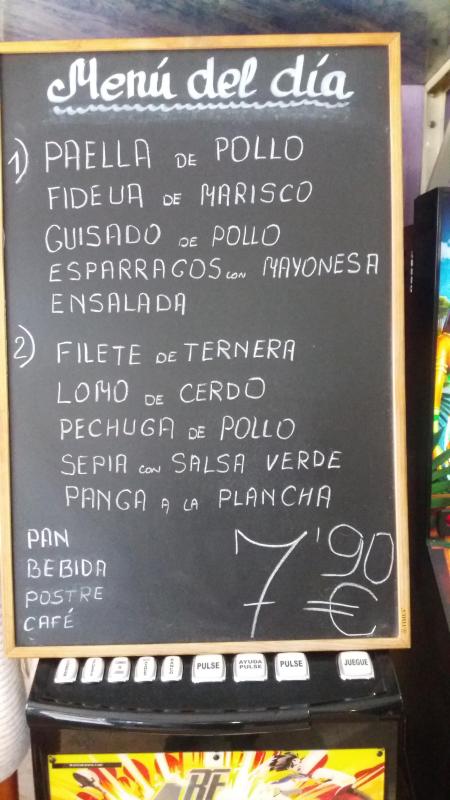 Menú del día
1) PAELLA DE POLLO
FIDEUA DE MARISCO
GUISADO DE POLLO
ESPARRAGOS CON MAYONESA
ENSALADA
2) FILETE DE TERNERA
LOMO DE CERDO
PECHUGA DE POLLO
SEPIA CON SALSA VERDE
PANGA A LA PLANCHA
PAN
BEBIDA
POSTRE
CAFÉ
7'90
€
PULSE AYUDA PULSE PULSE JUEGUE